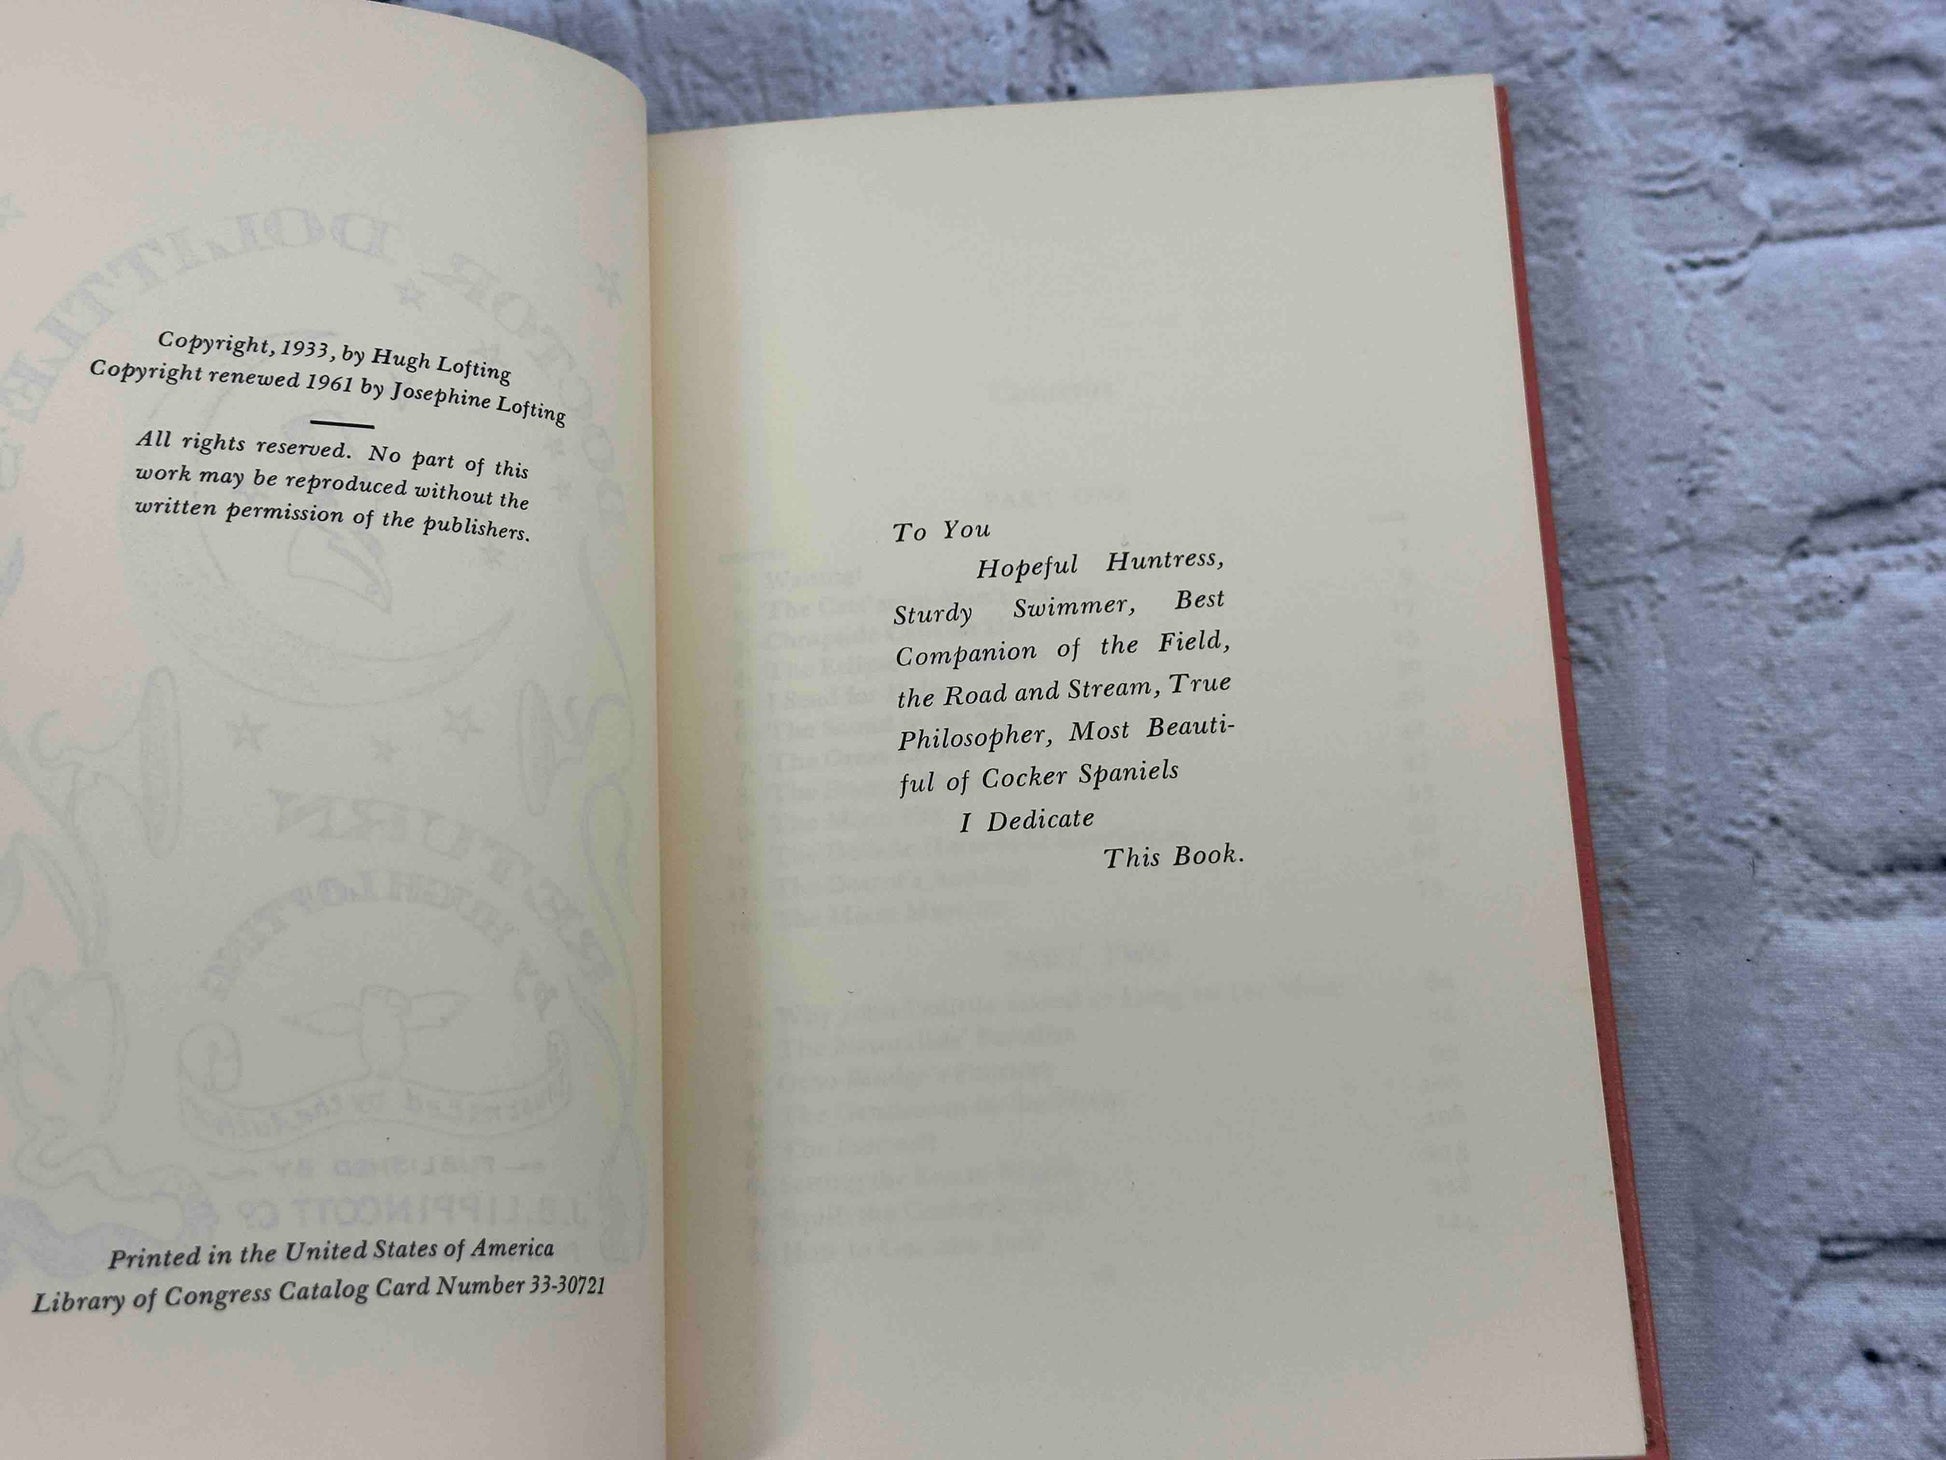 Copyright, 1933, by Hugh Lofting
Copyright renewed 1961 by Josephine Lofting
All rights reserved. No part of this
work may be reproduced without the
written permission of the publishers.
Printed in the United States of America
Library of Congress Catalog Card Number 33-30721
To You
Hopeful Huntress,
Sturdy Swimmer, Best
Companion of the Field,
the Road and Stream, True
Philosopher, Most Beauti-
ful of Cocker Spaniels
I Dedicate
This Book.